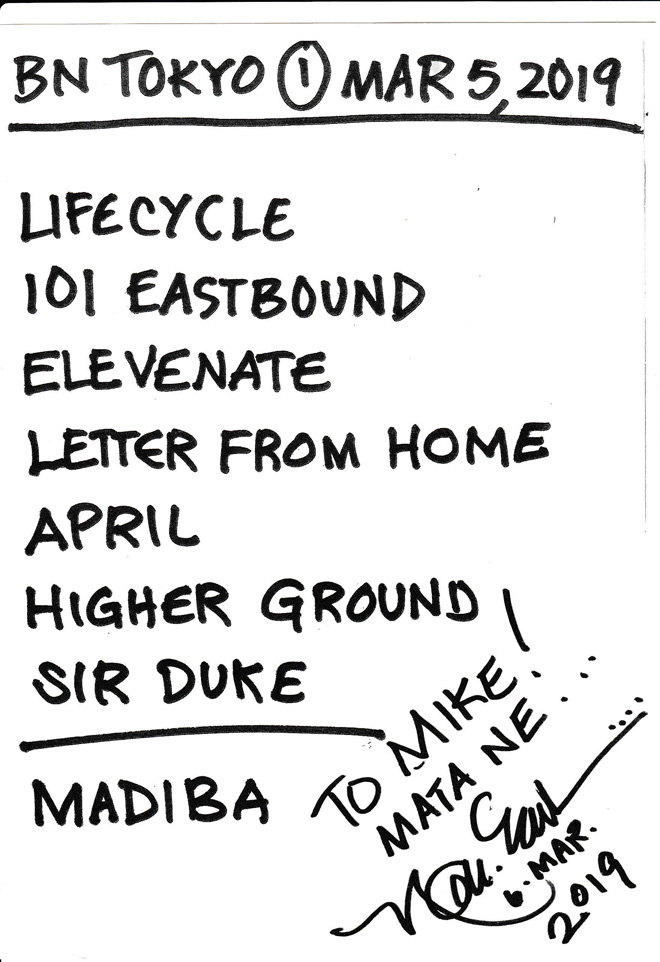 BN TOKYO ① MAR 5, 2019
LIFECYCLE
101 EASTBOUND
ELEVENATE
LETTER FROM HOME
APRIL
HIGHER GROUND
SIR DUKE
MADIBA
TO MIKE!
MATA NE...
6. MAR.
2019